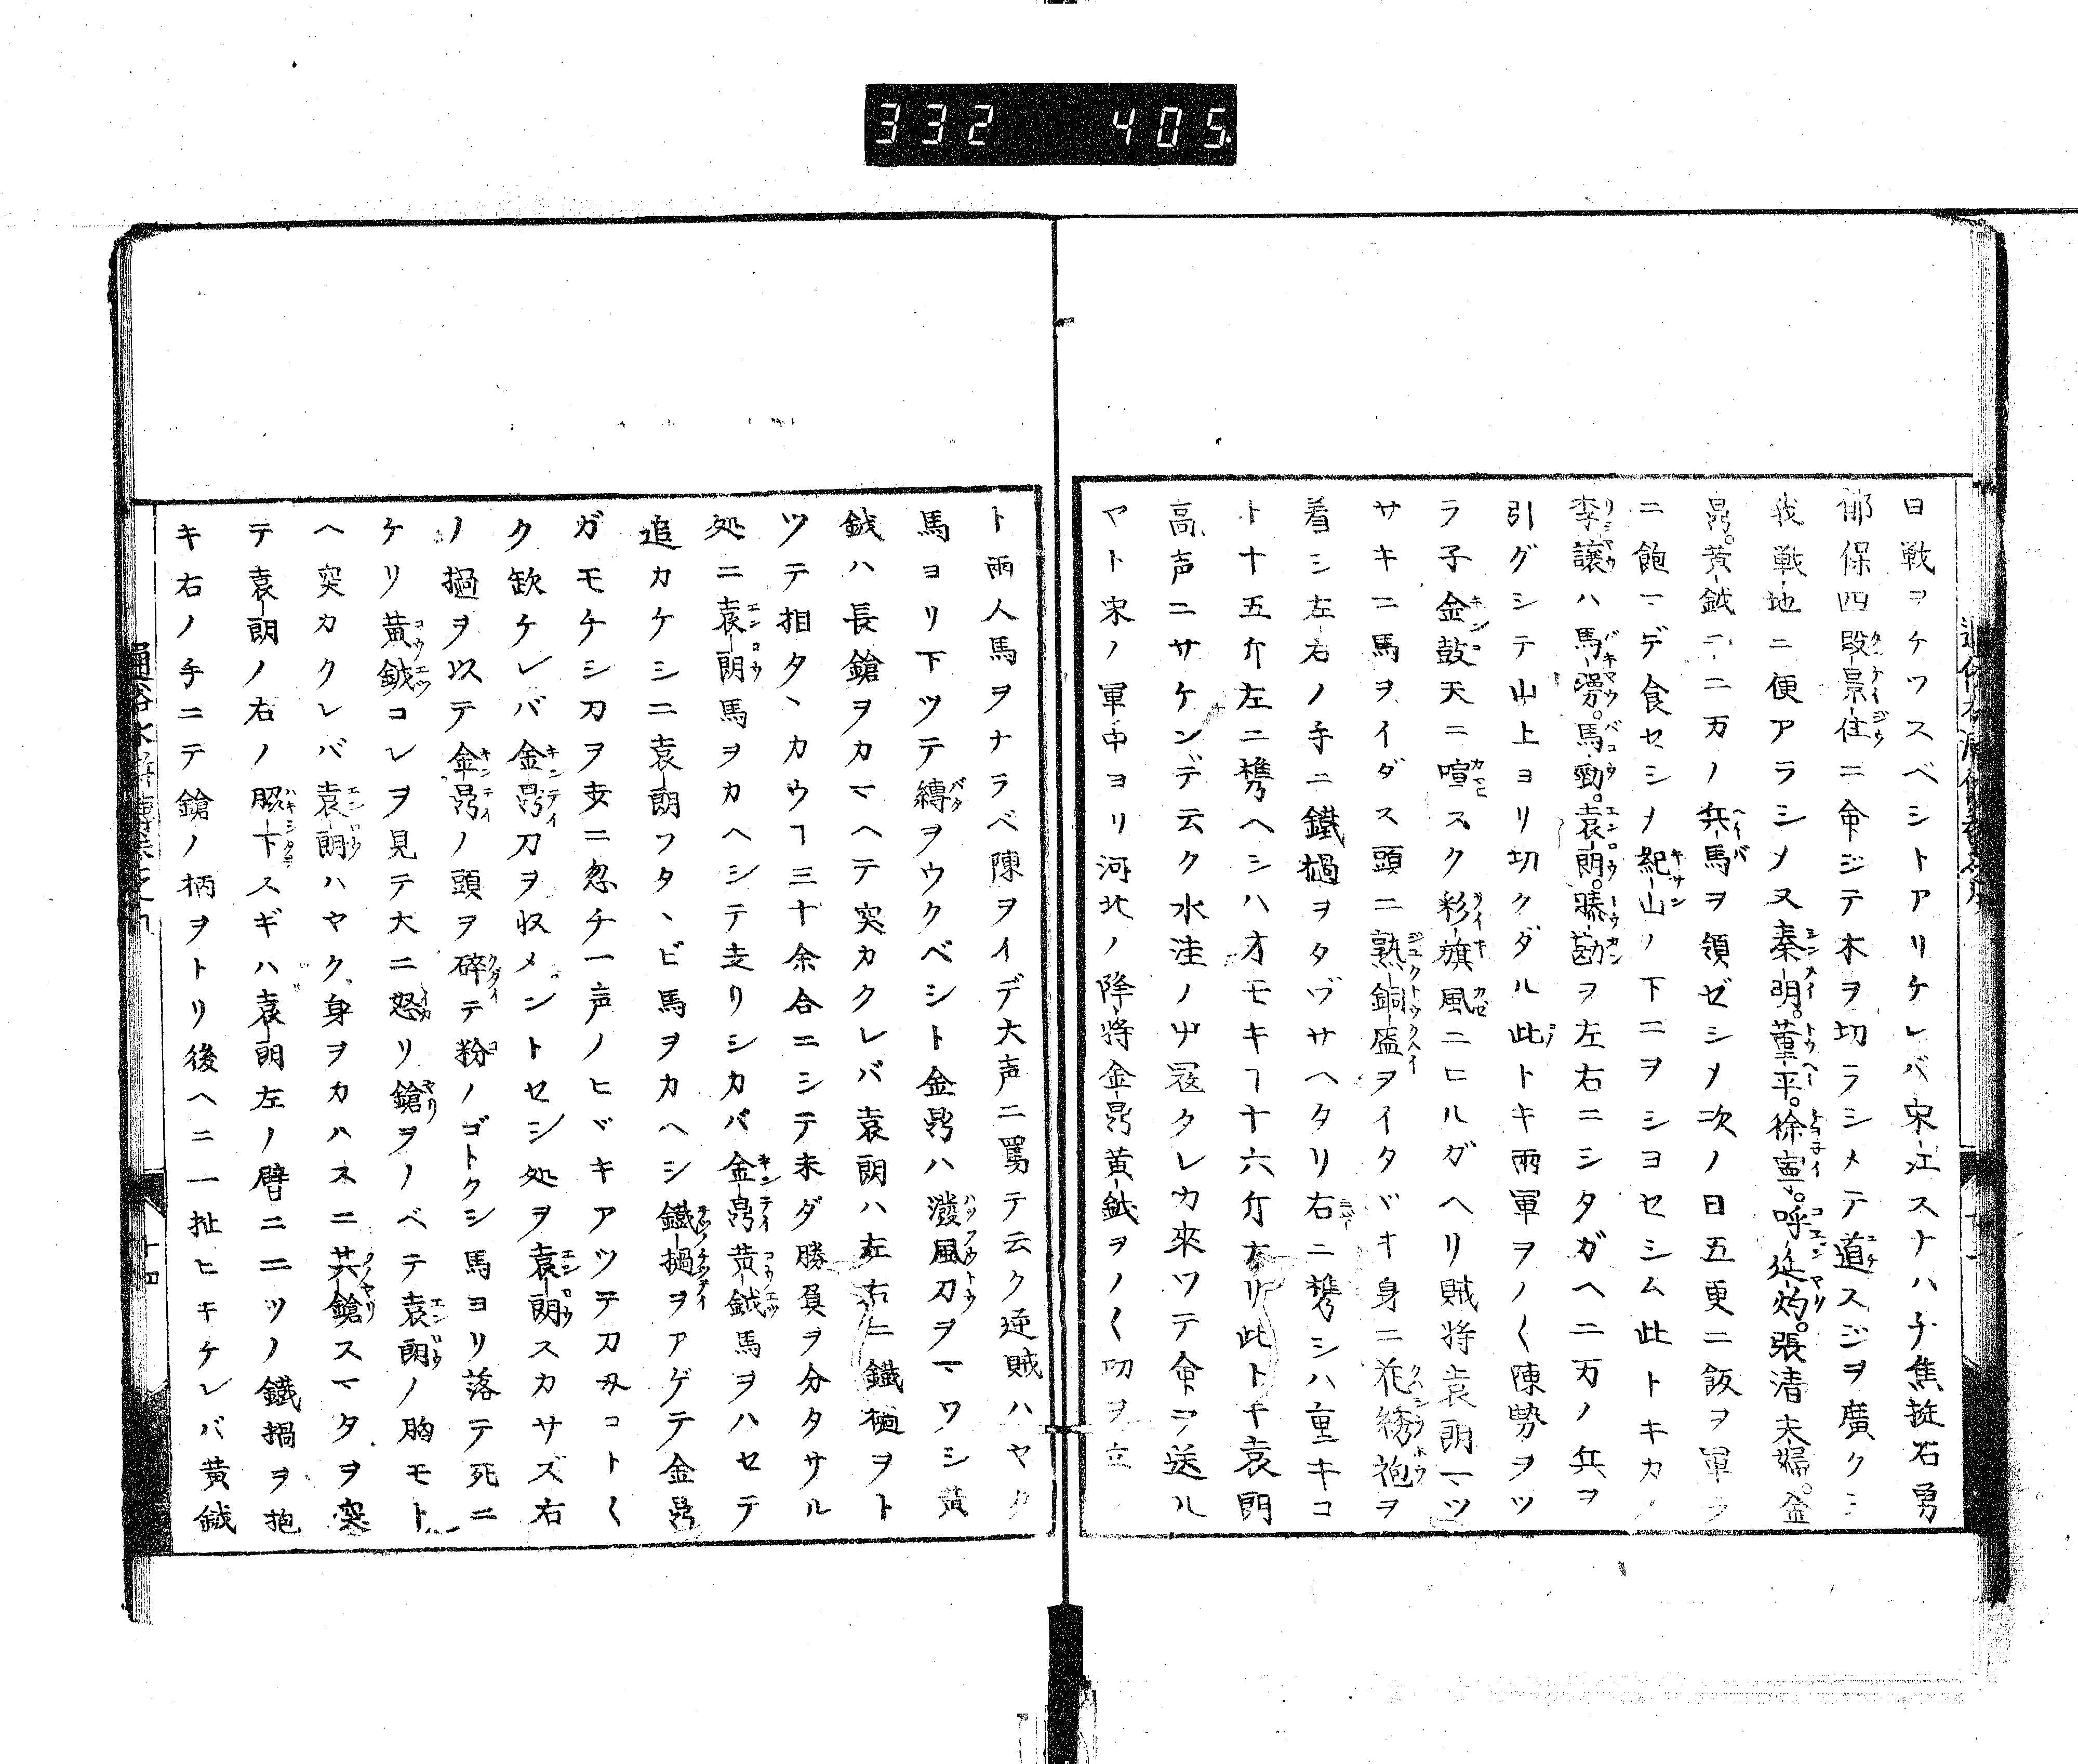 332 405
日戰ヲケツスベシトアリケレバ宋江スナハチ焦挺石勇
郁保四段景住ニ命ジテ木ヲ切ラシメテ道スジヲ廣クシ
我戰地ニ便アラシメ又秦明。董平。徐寧。呼延灼。張清夫婦。金
鼎。黄鉞ニ二万ノ兵馬ヲ領ゼシメ次ノ日五更ニ飯ヲ軍ラ
ニ飽マデ食セシメ紀山ノ下ニヲシヨセシム此トキカノ
李譲ハ馬𭰫。馬勁。袁朗。滕戡ヲ左右ニシタガヘ二万ノ兵ヲ
引グシテ山上ヨリ切クダル此トキ両軍ヲノ〱陳勢ヲツ
ラ子金鼓天ニ喧スク彩旗風ニヒルガヘリ賊将袁朗マツ
サキニ馬ヲイダス頭ニ熟銅盔ヲイタヾキ身ニ花綉袍ヲ
着シ左右ノ手ニ鐵撾ヲタヅサヘタリ右ニ携シハ重キコ
ト十五斤左ニ携ヘシハオモキヿ十六斤ナリ此トキ袁朗
高声ニサケンデ云ク水洼ノ艸寇クレカ來ツテ命ヲ送ル
ヤト宋ノ軍中ヨリ河北ノ降将金鼎黄鉞ヲノ〱功ヲ立
ト両人馬ヲナラベ陳ヲイデ大声ニ罵テ云ク逆賊ハヤク
馬ヨリ下ツテ縛ヲウクベシト金鼎ハ潑風刀ヲマワシ黄
鉞ハ長鎗ヲカマヘテ突カクレバ袁朗ハ左右ニ鐵撾ヲト
ツテ相タヽカウヿ三十余合ニシテ未ダ勝負ヲ分タサル
処ニ袁朗馬ヲカヘシテ走リシカバ金鼎黄鉞馬ヲハセテ
追カケシニ袁朗フタヽビ馬ヲカヘシ鐵撾ヲアゲテ金鼎
ガモチシ刀ヲ支ニ忽チ一声ノヒヾキアツテ刀刄コト〱
ク缺ケレバ金鼎刀ヲ収メントセシ処ヲ袁朗スカサズ右
ノ撾ヲ以テ金鼎ノ頭ヲ碎テ粉ノゴトクシ馬ヨリ落テ死ニ
ケリ黄鉞コレヲ見テ大ニ怒リ鎗ヲノベテ袁朗ノ胸モト
ヘ突カクレバ袁朗ハヤク身ヲカハスニ其鎗スマタヲ突
テ袁朗ノ右ノ脇下スギハ袁朗左ノ臂ニ二ツノ鐵撾ヲ抱
キ右ノ手ニテ鎗ノ柄ヲトリ後ヘニ一扯ヒキケレバ黄鉞
十四